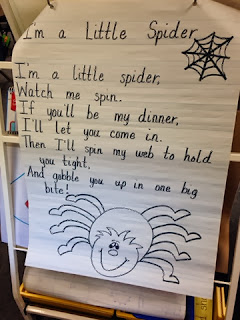 I'm a Little Spider
I'm a little spider,
Watch me spin.
If you'll be my dinner,
I'll let you come in.
Then I'll spin my web to hold
you tight,
And gobble you up in one big
bite!